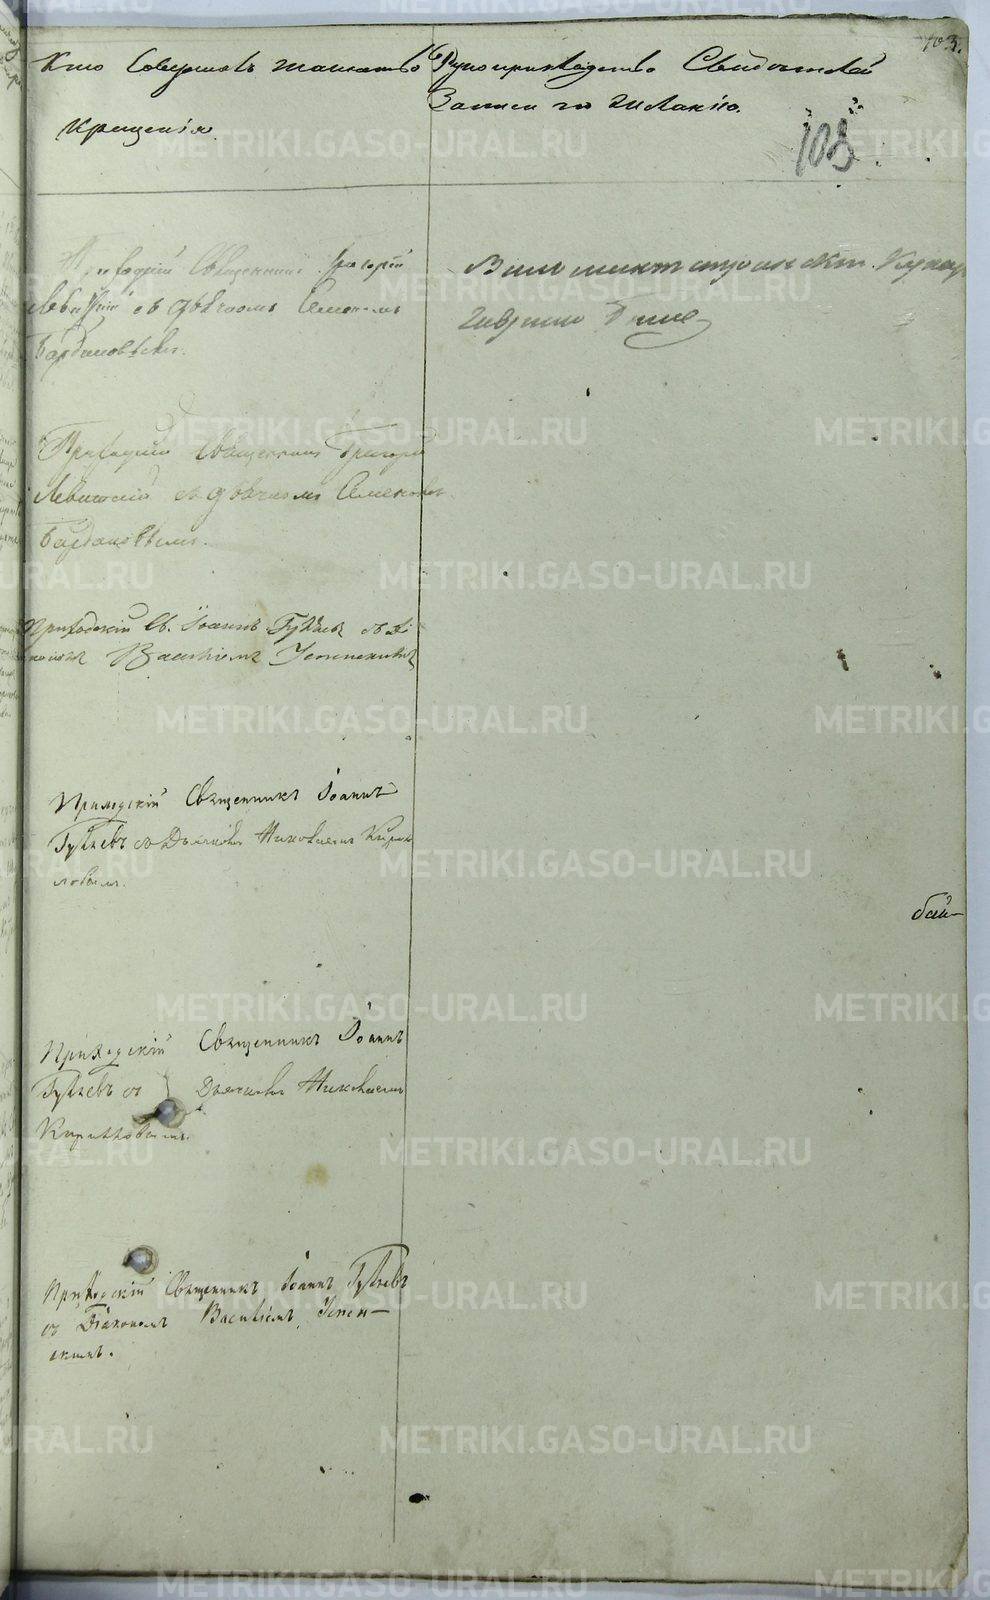 103.
Кто совершалъ таинство
крещенія.
Рукоприкладство Свидѣтелей
Записи по желанію.
103
Приходскій Священникъ Григорій
Левитскій съ дьячкомъ Семеномъ
Богдановымъ.
при
Приходскій Священникъ Григорій
Левитскій съ дьячкомъ Семеномъ
Приходскій Св. Іоаннъ Гуляевъ съ
Василіемъ Успенскимъ
Приходскій Священникъ Іоаннъ
Гуляевъ съ Дьячкомъ Николаемъ Кирил
ловымъ.
бай
Приходскій Священникъ Іоаннъ
Гуляевъ съ Дьячкомъ Николаемъ
Кирилловымъ.
Приходскій Священникъ Іоаннъ Гуляевъ
съ Діакономъ Василіемъ Успен-
скимъ.
METRIKI.GASO-URAL.RU